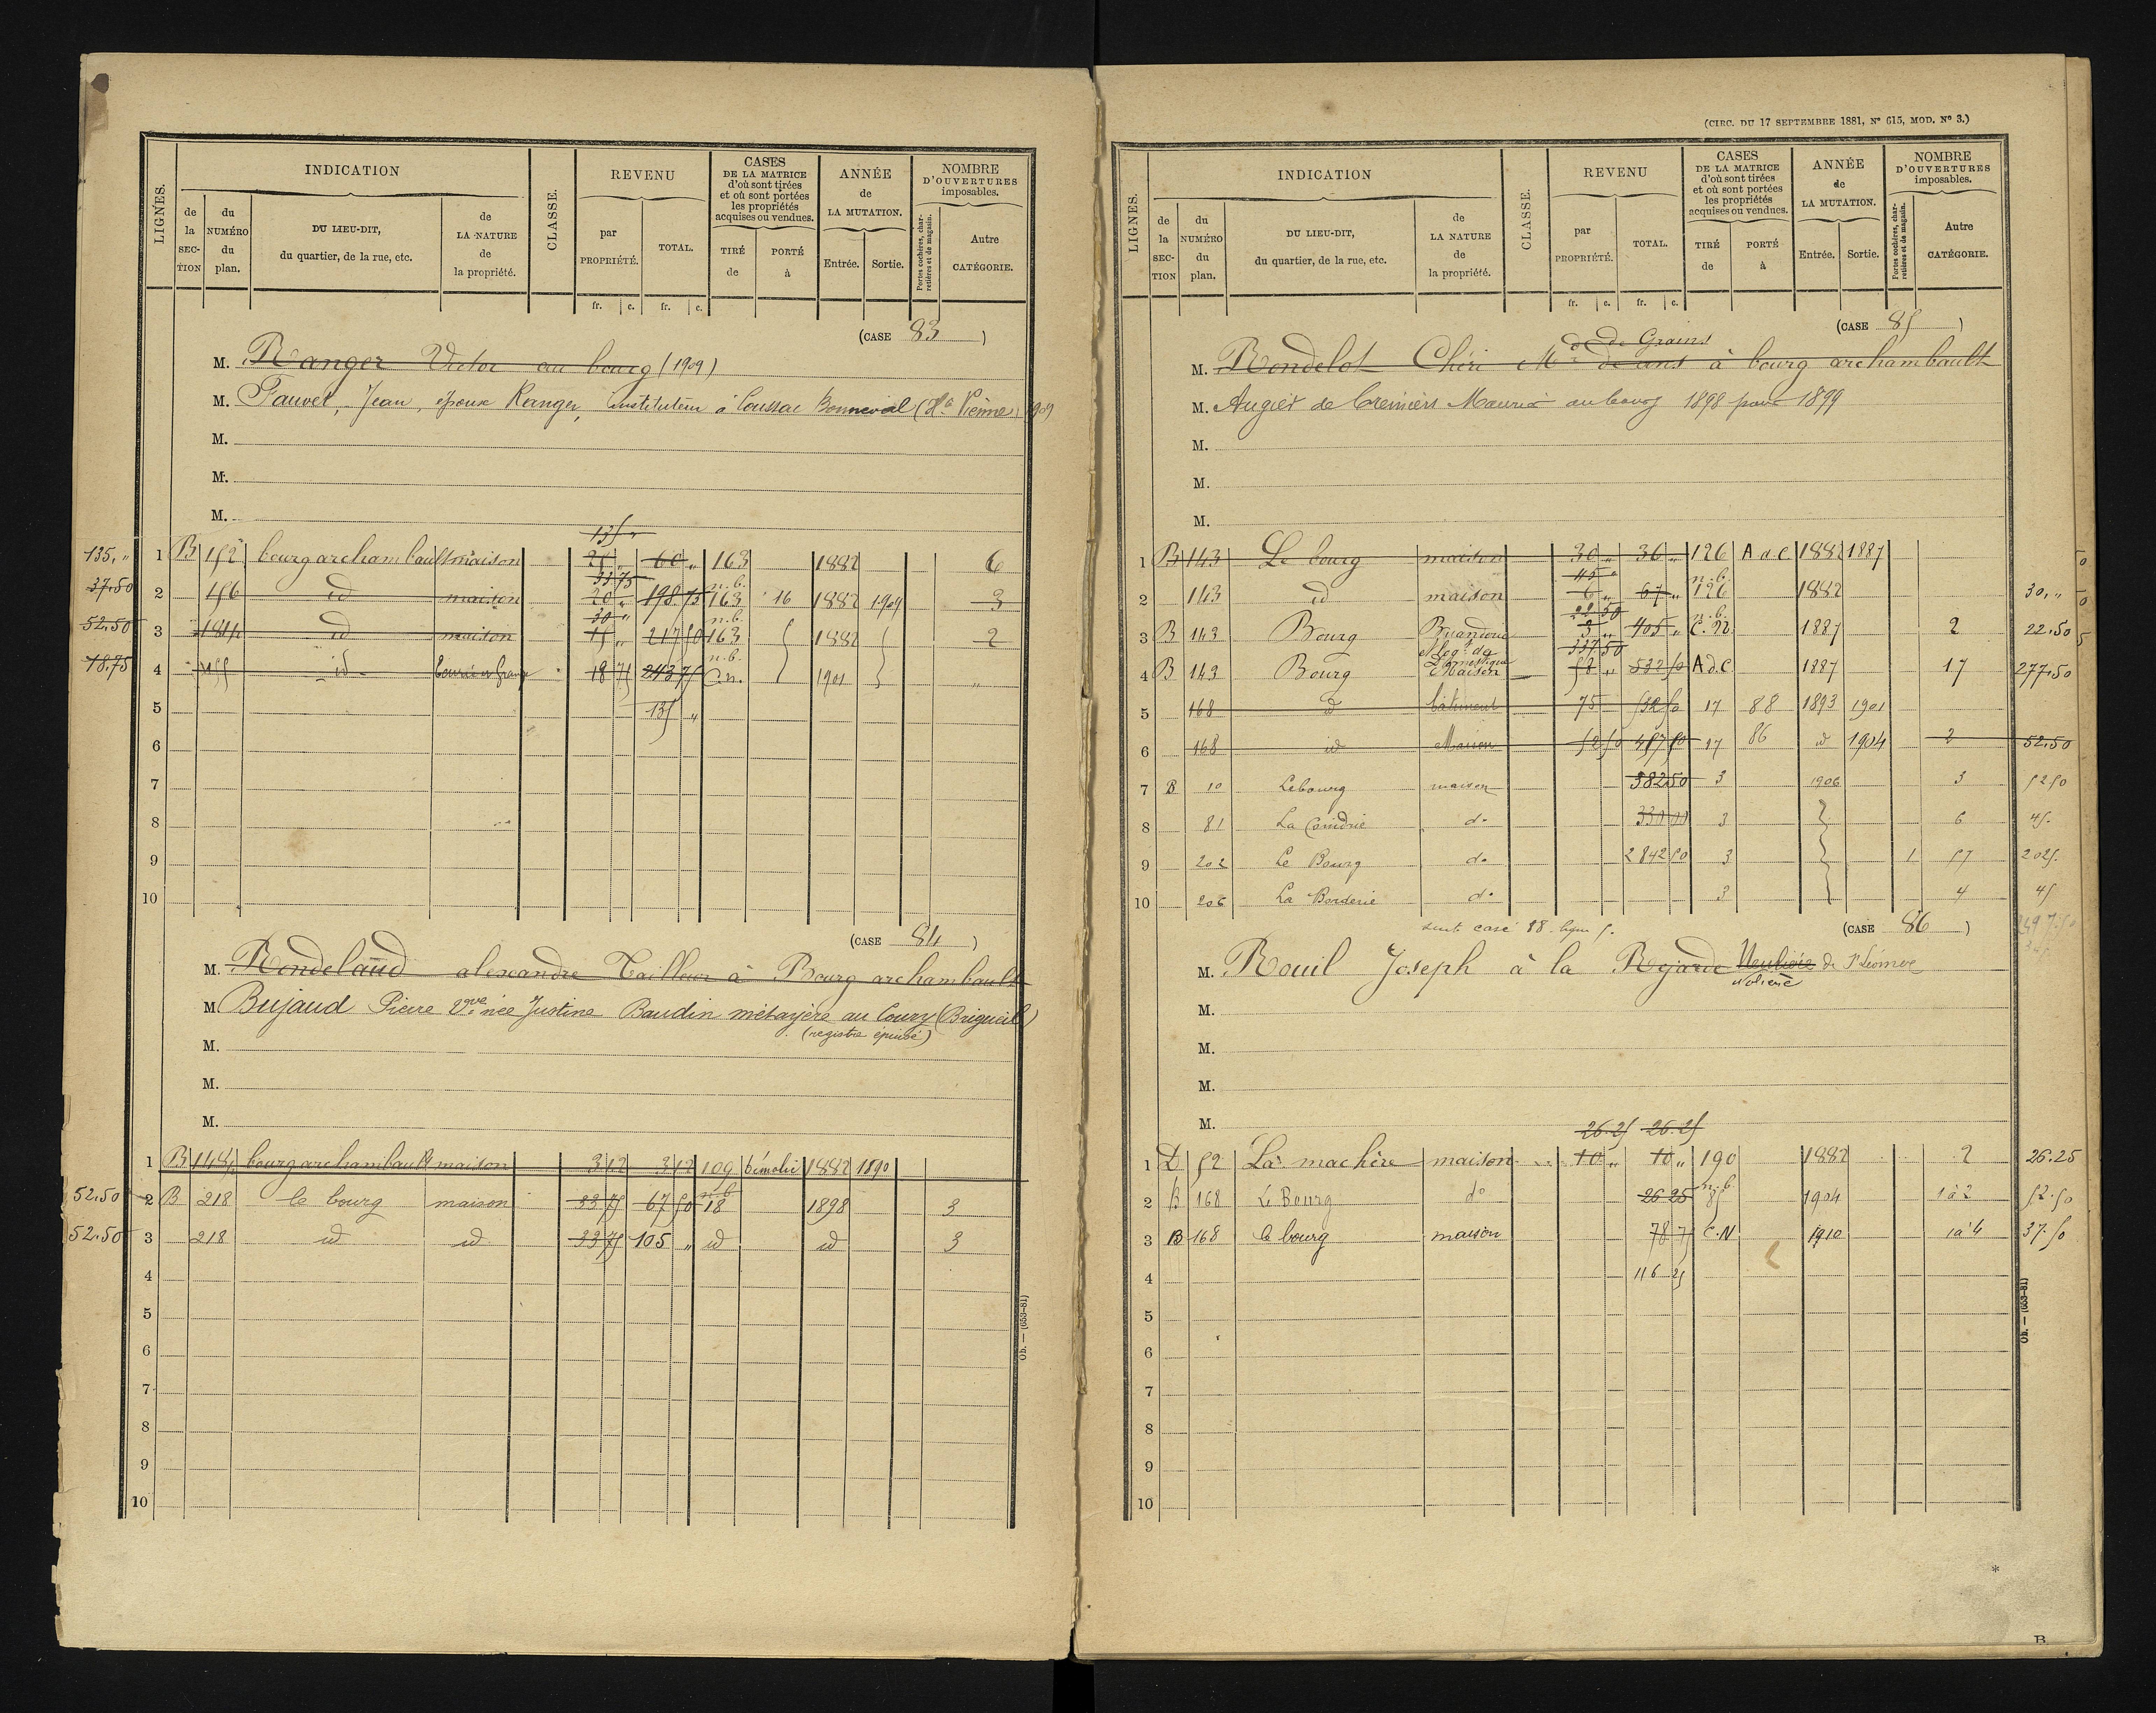 (CIRC. DU 17 SEPTEMBRE 1881, N° 615, MOD. N° 3.)
LIGNES. INDICATION CLASSE. REVENU CASES DE LA MATRICE d'où sont tirées et où sont portées les propriétés acquises ou vendues. ANNÉE de LA MUTATION. NOMBRE D'OUVERTURES imposables.
de la SECTION du NUMÉRO du plan. DU LIEU-DIT, du quartier, de la rue, etc. de LA NATURE de la propriété. par PROPRIÉTÉ. TOTAL. TIRÉ de PORTÉ à Entrée. Sortie. Portes cochères, charretières et de magasin. Autre CATÉGORIE.
fr. c. fr. c.
(CASE 83)
M. Ranger Victor au bourg (1909)
M. Fauvet, Jean, époux Ranger, instituteur à Coussac Bonneval (Hte Vienne) 1909
M.
M.
M.
135 "
135, " 1 B 152 bourg archambault maison 25 " 60 " 163 1882 6
33 75 n.b.
37.50 2 156 id maison 20 " 198 75 163 16 1882 1909 3
30 " n.b.
52.50 3 181 id maison 15 " 217 50 163 1882 2
n.b.
18.75 4 155 id 18 75 243 75 C.n. 1901 "
5 135 "
6
7
8
9
10
(CASE 84)
M. Rondelaud alexandre Tailleur à Bourg archambault
M. Bujaud Pierre Vve née Justine Baudin métayère au Coury (Brigueil)
(registre épuisé)
M.
M.
M.
1 B 148 bourg archambault maison 3 12 3 12 109 démolie 1882 1890
n.b.
52.50 2 B 218 le bourg maison 33 75 67 50 18 1898 3
52.50 3 218 id id 33 75 105 " id id 3
4
5
6
7
8
9
10
Ob. — (653-81)
LIGNES. INDICATION CLASSE. REVENU CASES DE LA MATRICE d'où sont tirées et où sont portées les propriétés acquises ou vendues. ANNÉE de LA MUTATION. NOMBRE D'OUVERTURES imposables.
de la SECTION du NUMÉRO du plan. DU LIEU-DIT, du quartier, de la rue, etc. de LA NATURE de la propriété. par PROPRIÉTÉ. TOTAL. TIRÉ de PORTÉ à Entrée. Sortie. Portes cochères, charretières et de magasin. Autre CATÉGORIE.
fr. c. fr. c.
(CASE 85)
de Grains
M. Rondelot Chéri Md à bourg archambault
M. Augier de Cremiers Maurice au bourg 1898 pour 1899
M.
M.
M.
1 B 143 Le bourg maison 30 " 36 " 126 A d C 1882 1887
45 " n.b.
2 143 id maison 6 " 67 " 126 1882 30, "
22 50 n.b.
3 B 143 Bourg Buanderie 3 " 405 " C. N. 1887 2 22.50
337 50
4 B 143 Bourg Maison 58 " 532 50 A d C 1887 17 277.50
5 168 d bâtiment 75 532 50 17 88 1893 1901
6 168 id Maison 52 50 457 50 17 86 d 1904 2 52.50
7 B 10 Le bourg maison 382 50 3 1906 3 52 50
8 81 La Coindrie do 330 00 3 6 45.
9 202 Le Bourg do 2842 50 3 1 57 2025.
10 206 La Borderie do 3 4 45
suite case 88 ligne 5.
(CASE 86)
M. Rouil Joseph à la Rejarde de St Léomer
M.
M.
M.
M.
26.25 26.25
1 D 52 La machère maison 10 " 10 " 190 1882 2 26.25
n.b.
2 B 168 Le Bourg do 26 25 85 1904 1 à 2 52.50
3 B 168 le bourg maison 78 75 C.N 1910 1 à 4 37.50
4 116 25
5
6
7
8
9
10
Ob. — (653-81)
*
B